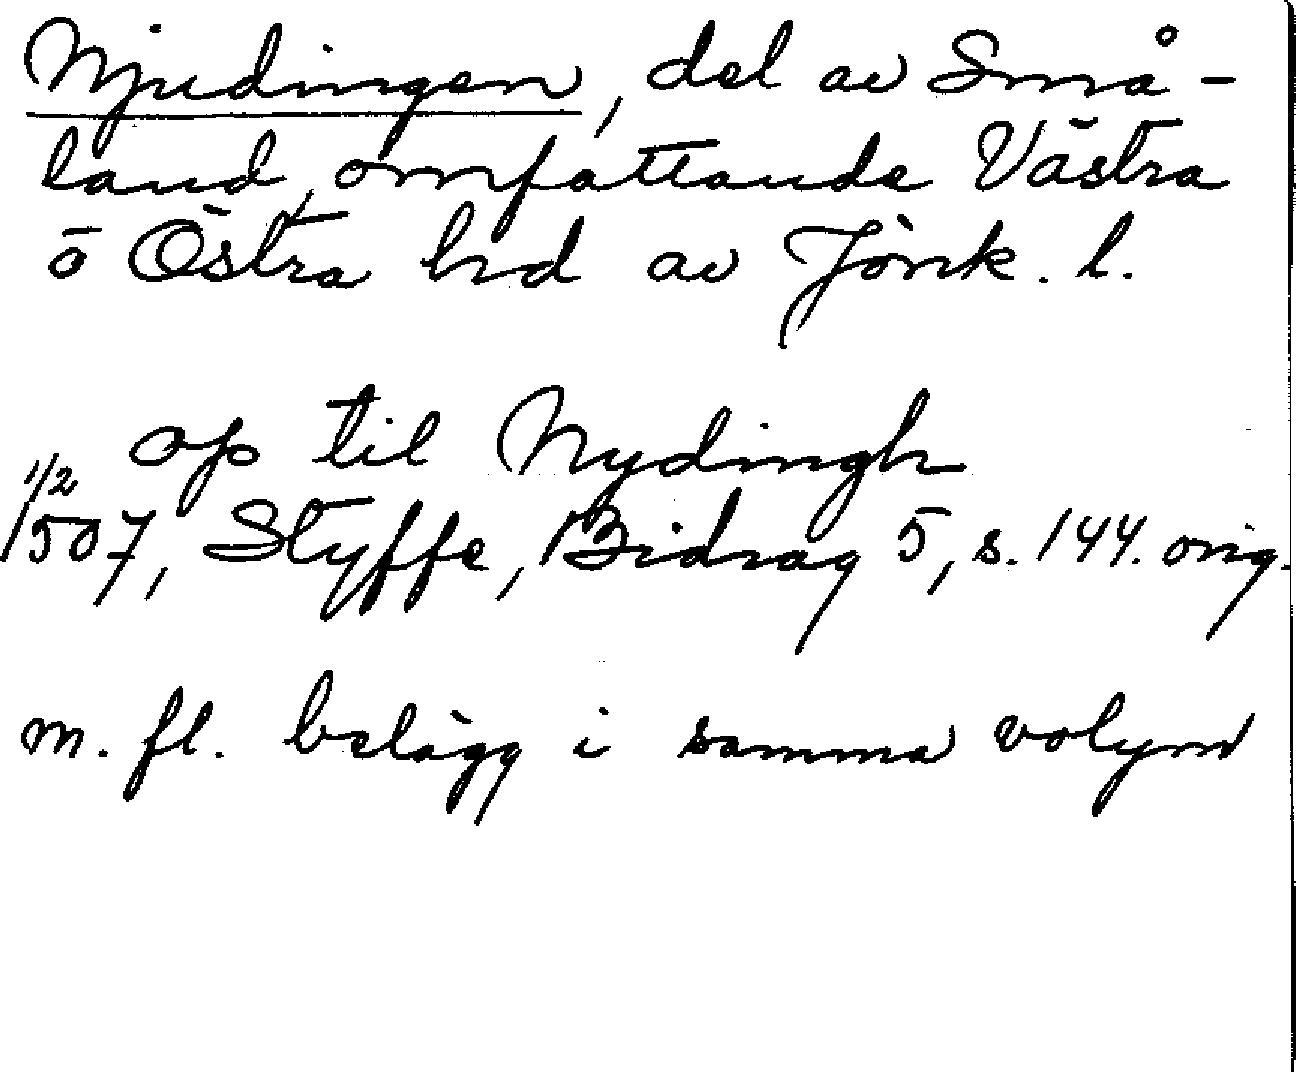 Njudingen, del av Små-
land, omfattande Västra
o Östra hd av Jönk. l.
op til Nydingh
1/2
1507, Styffe, Bidrag 5, s. 144. orig.
m. fl. belägg i samma volym